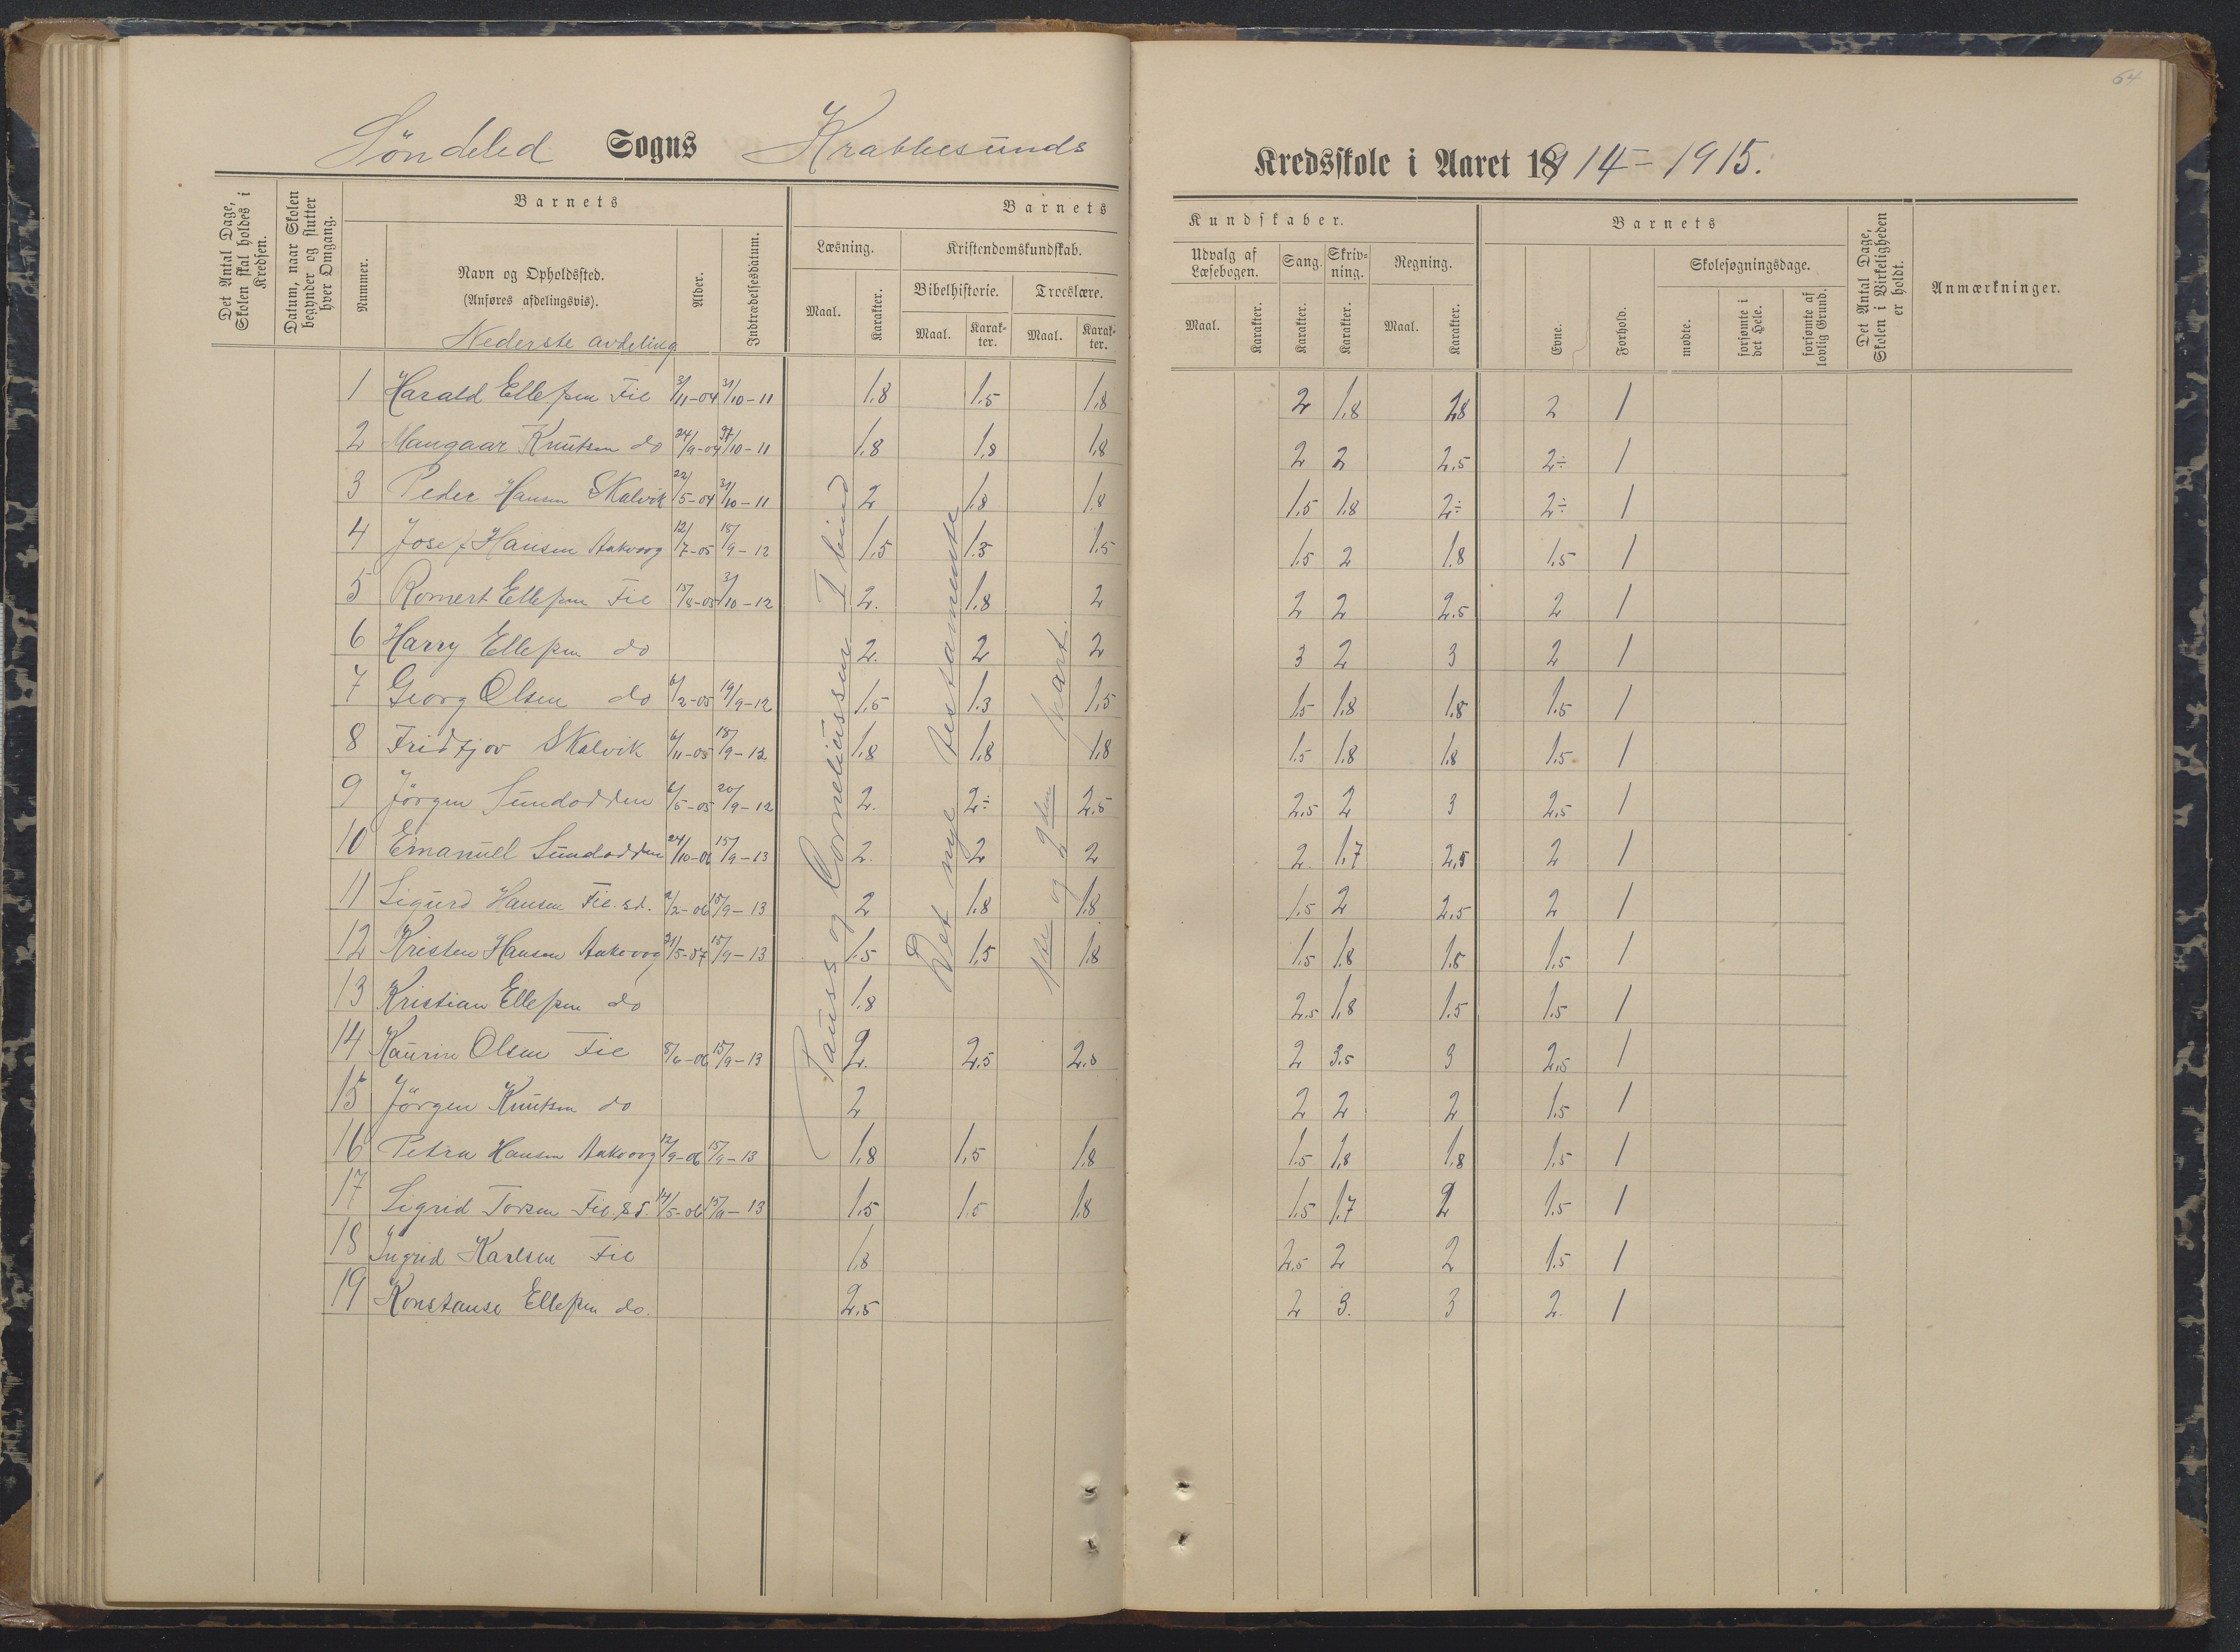 64
Söndeled Sogns Krabbesunds
Kredsskole i Aaret 1914-1915.
Det Antal Dage, Skolen skal holdes i Kredsen.
Datum, naar Skolen begynder og slutter hver Omgang.
Barnets
Nummer.
Navn og Opholdssted.
(Anføres afdelingsvis).
Nederste avdeling
Alder.
Indtrædelsesdatum.
Barnets
Læsning.
Maal.
Karakter.
Kristendomskundskab.
Bibelhistorie.
Maal.
Karakter.
Troeslære.
Maal.
Karakter.
Kundskaber.
Udvalg af Læsebogen.
Maal.
Karakter.
Sang.
Karakter.
Skrivning.
Karakter.
Regning.
Maal.
Karakter.
Barnets
Evne.
Forhold.
Skolesøgningsdage.
mødte.
forsømte i det Hele.
forsømte af lovlig Grund.
Det Antal Dage, Skolen i Virkeligheden er holdt.
Anmærkninger.
Pauss og Corneliussen I bind
Det nye testamente
1ste og 2den part.
1 Harald Ellefsen Fie 3/11-04 31/10-11 1.8 1.5 1.8 2 1.8 28 2 1
2 Mangaar Knutsen do 24/9-04 31/10-11 1.8 1.8 1.8 2 2 2.5 2÷ 1
3 Peder Hansen Skalvik 22/5-04 31/10-11 2 1.8 1.8 1.5 1.8 2÷ 2÷ 1
4 Josef Hansen Aakvaag 12/7-05 18/9-12 1.5 1.3 1.5 1.5 2 1.8 1.5 1
5 Romert Ellefsen Fie 15/8-05 3/10-12 2. 1.8 2 2 2 2.5 2 1
6 Harry Ellefsen do 2. 2 2 3 2 3 2 1
7 Georg Olsen do 6/2-05 19/9-12 1.5 1.3 1.5 1.5 1.8 1.8 1.5 1
8 Fridtjov Skalvik 6/11-05 18/9-12 1.8 1.8 1.8 1.5 1.8 1.8 1.5 1
9 Jörgen Sundodden 6/5-05 20/9-12 2. 2÷ 2.5 2.5 2 3 2.5 1
10 Emanuel Sundodden 24/10-06 15/9-13 2. 2 2 2. 1.7 2.5 2 1
11 Sigurd Hansen Fie. sd. 2/2-06 15/9-13 2 1.8 1.8 1.5 2 2.5 2 1
12 Kristen Hansen Aakvaag 21/5-07 15/9-13 1.5 1.5 1.8 1.5 1.8 1.5 1.5 1
13 Kristian Ellefsen do 1.8 2.5 1.8 1.5 1.5 1
14 Kaurin Olsen Fie 8/6-06 15/9-13 2. 2.5 2.5 2 3.5 3 2.5 1
15 Jörgen Knutsen do 2 2 2 2 1.5 1
16 Petra Hansen Aakvaag 12/9-06 15/9-13 1.8 1.5 1.8 1.5 1.8 1.8 1.5 1
17 Sigrid Torsen Fie sd. 14/5-06 15/9-13 1.5 1.5 1.8 1.5 1.7 2 1.5 1
18 Ingrid Karlsen Fie 1.8 2.5 2 2 1.5 1
19 Konstanse Ellefsen do. 2.5 2 3. 3 2. 1